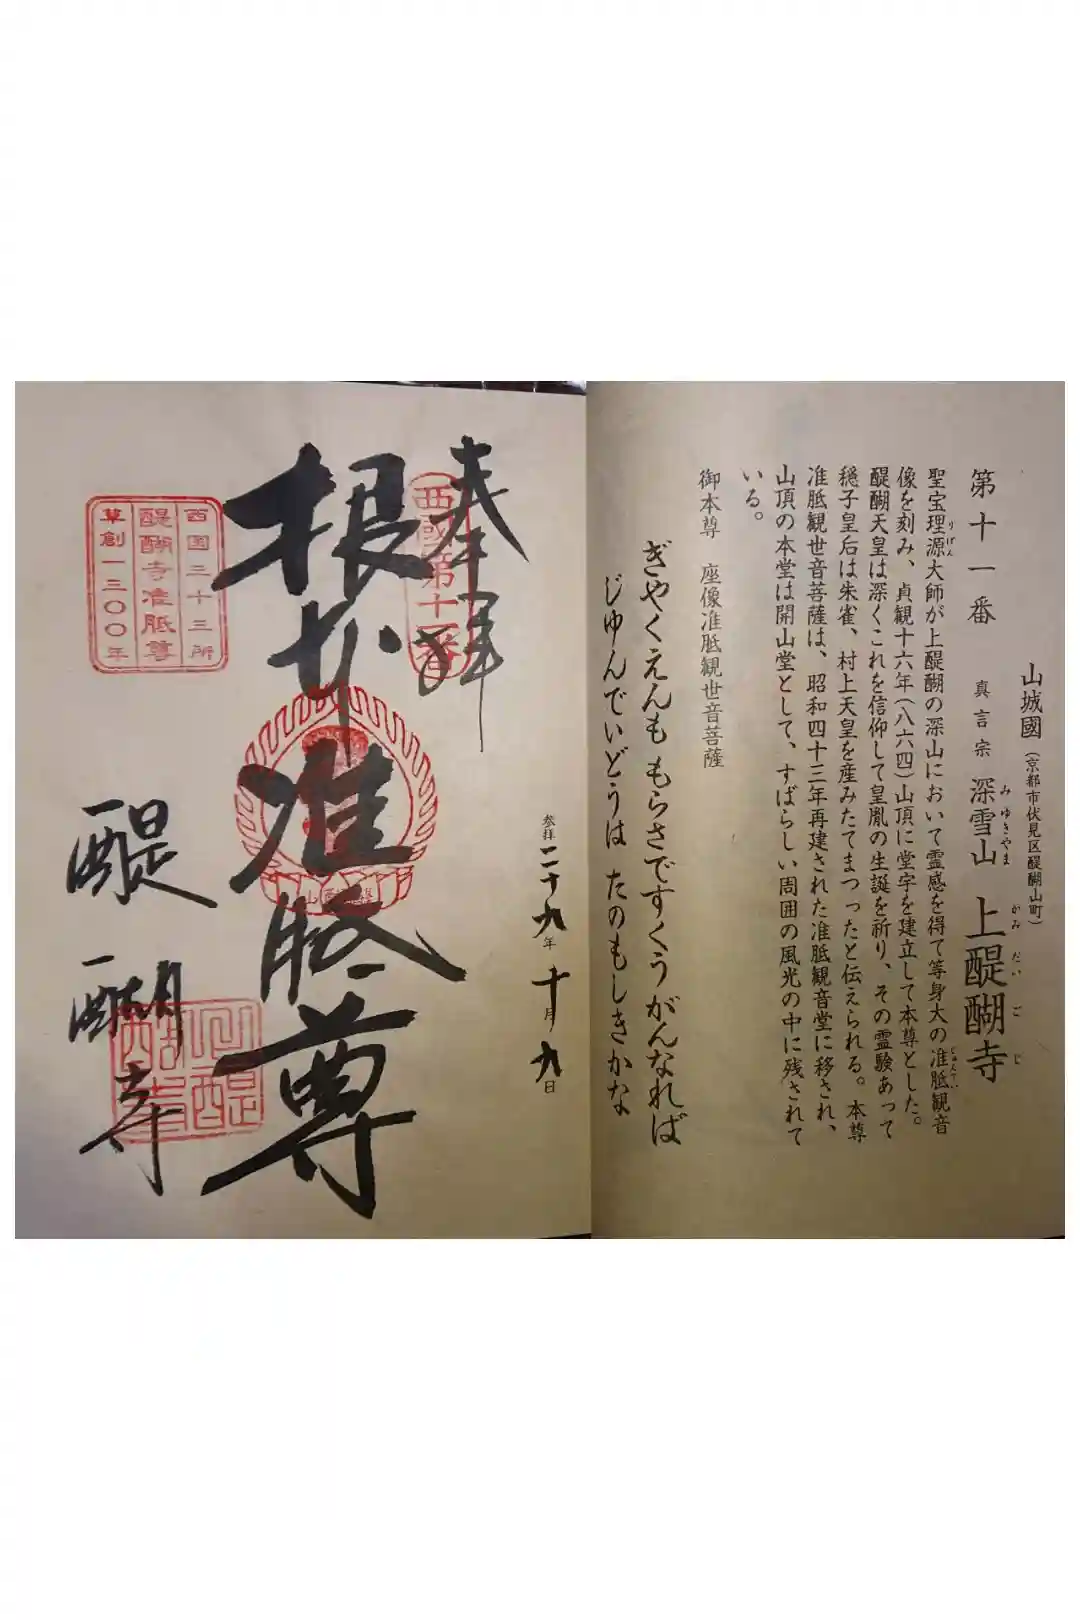 山城國(京都市伏見区醍醐山町)
第十一番 真言宗 深雪山 上醍醐寺
みゆきやま かみだいごじ
聖宝理源大師が上醍醐の深山において霊感を得て等身大の准胝観音
りげん じゅんてい
像を刻み、貞観十六年(八六四)山頂に堂宇を建立して本尊とした。
醍醐天皇は深くこれを信仰して皇胤の生誕を祈り、その霊験あって
穏子皇后は朱雀、村上天皇を産みたてまつったと伝えられる。本尊
准胝観世音菩薩は、昭和四十三年再建された准胝観音堂に移され、
山頂の本堂は開山堂として、すばらしい周囲の風光の中に残されて
いる。
御本尊 座像准胝観世音菩薩
ぎやくえんも もらさですくうがんなれば
じゆんでいどうは たのもしきかな
参拝二十九年十月九日
奉拝
西國第十一番
根本 准胝尊
醍醐寺
西国三十三所
醍醐寺准胝尊
草創一三〇〇年